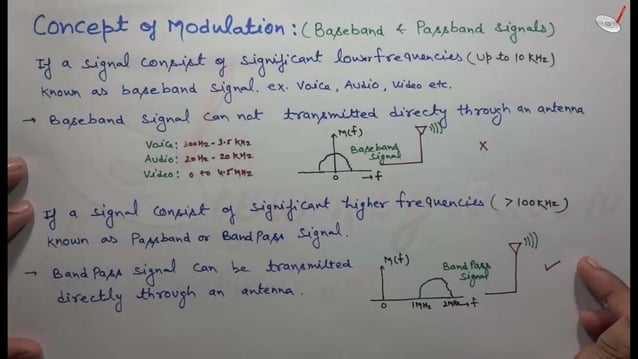 Concept of Modulation : ( Baseband & Passband signals )
If a signal consist of significant lower frequencies ( up to 10 KHz )
known as baseband signal. ex. Voice, Audio, video etc.
→ Baseband signal can not transmitted directy through an antenna
Voice : 300Hz - 3.5 KHz
Audio : 20Hz - 20 KHz
Video : 0 to 4.5 MHz
M(f)
Baseband
signal
0
→ f
X
If a signal consist of significant higher frequencies ( > 100 KHz )
known as Passband or BandPass signal.
→ BandPass signal can be transmitted
directly through an antenna.
M(f)
BandPass
signal
0
1MHz
2MHz
→ f
✓